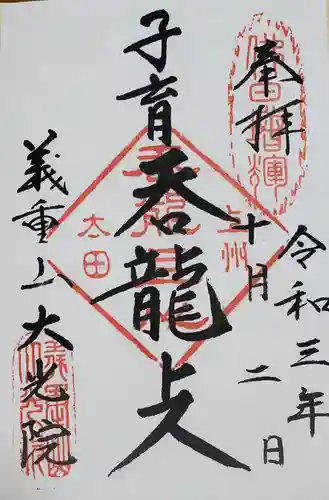 奉拝
令和三年
十月
二日
子育呑龍上人
上州
太田
義重山大光院